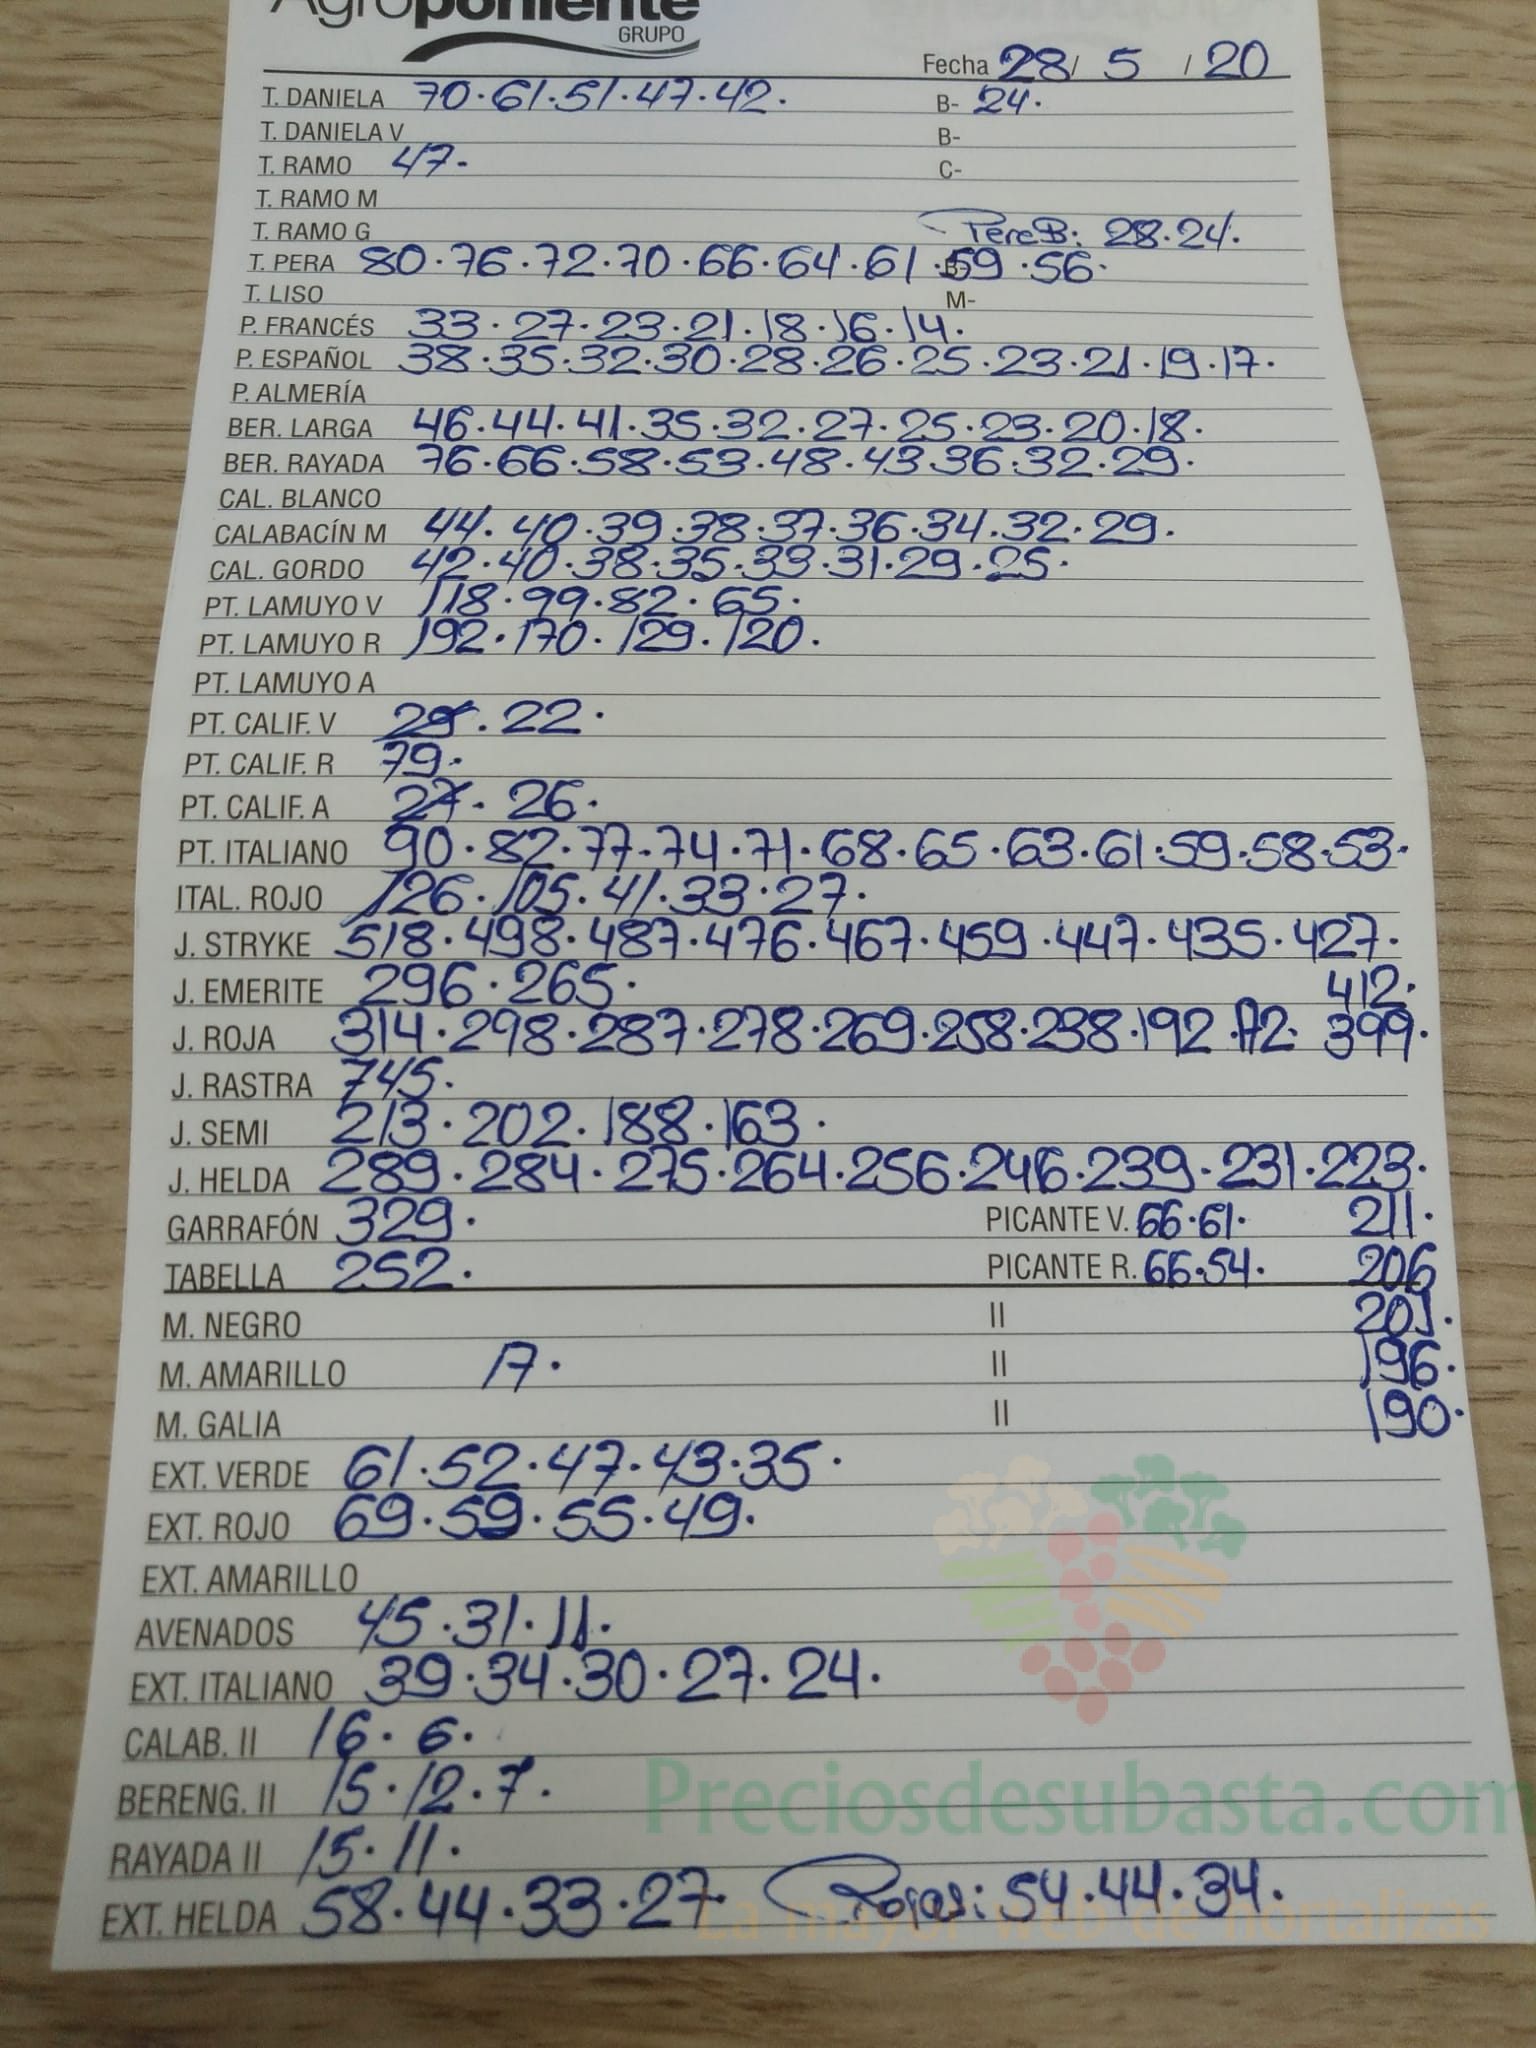 Agroponiente
GRUPO
Fecha 28 / 5 / 20
T. DANIELA 70·61·51·47·42· B- 24·
T. DANIELA V B-
T. RAMO 47· C-
T. RAMO M
T. RAMO G Pera B: 28·24·
T. PERA 80·76·72·70·66·64·61·59·56·
T. LISO M-
P. FRANCÉS 33·27·23·21·18·16·14·
P. ESPAÑOL 38·35·32·30·28·26·25·23·21·19·17·
P. ALMERÍA
BER. LARGA 46·44·41·35·32·27·25·23·20·18·
BER. RAYADA 76·66·58·53·48·43·36·32·29·
CAL. BLANCO
CALABACÍN M 44·40·39·38·37·36·34·32·29·
CAL. GORDO 42·40·38·35·33·31·29·25·
PT. LAMUYO V 118·99·82·65·
PT. LAMUYO R 192·170·129·120·
PT. LAMUYO A
PT. CALIF. V 22·
PT. CALIF. R 79·
PT. CALIF. A 27· 26·
PT. ITALIANO 90·82·77·74·71·68·65·63·61·59·58·53·
ITAL. ROJO 126·105·41·33·27·
J. STRYKE 518·498·487·476·467·459·447·435·427·
J. EMERITE 296·265· 412·
J. ROJA 314·298·287·278·269·258·238·192·172· 399·
J. RASTRA 745·
J. SEMI 213·202·188·163·
J. HELDA 289·284·275·264·256·246·239·231·223·
GARRAFÓN 329· PICANTE V. 66·61· 211·
TABELLA 252· PICANTE R. 66·54· 206
M. NEGRO II 201·
M. AMARILLO 17· II 196·
M. GALIA II 190·
EXT. VERDE 61·52·47·43·35·
EXT. ROJO 69·59·55·49·
EXT. AMARILLO
AVENADOS 45·31·11·
EXT. ITALIANO 39·34·30·27·24·
CALAB. II 16·6·
BERENG. II 15·12·7·
Preciosdesubasta.com
RAYADA II 15·11·
EXT. HELDA 58·44·33·27· Rojas: 54·44·34·
La mayor web de hortalizas